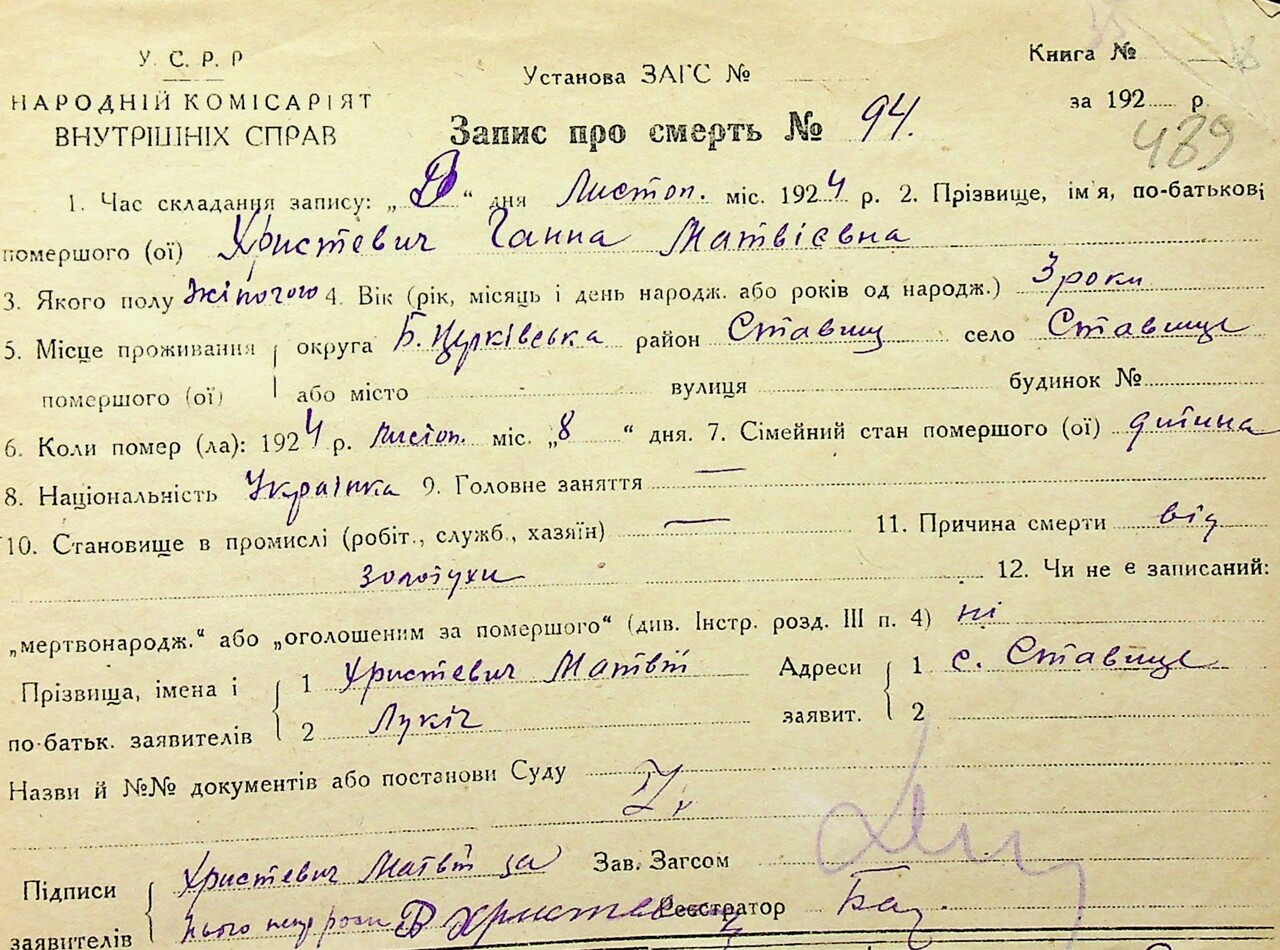 У. С. Р. Р
НАРОДНІЙ КОМІСАРІЯТ
ВНУТРІШНІХ СПРАВ
Установа ЗАГС №
Книга №
за 192 р.
Запис про смерть № 94.
489
1. Час складання запису: „ “ дня Листоп. міс. 1924 р. 2. Прізвище, ім'я, по-батькові
помершого (ої) Христевич Ганна Матвієвна
3. Якого полу жіночого 4. Вік (рік, місяць і день народж. або років од народж.) 3 роки
5. Місце проживання округа Б. Церківська район Ставищ село Ставище
помершого (ої) або місто вулиця будинок №
6. Коли помер (ла): 1924 р. листоп. міс. „8 “ дня. 7. Сімейний стан помершого (ої) дитина
8. Національність Українка 9. Головне заняття —
10. Становище в промислі (робіт., служб., хазяїн) — 11. Причина смерти від
золотухи 12. Чи не є записаний:
„мертвонародж.“ або „оголошеним за помершого“ (див. Інстр. розд. III п. 4) ні
Прізвища, імена і 1 Христевич Матвій Адреси 1 с. Ставище
по-батьк. заявителів 2 Лукіч заявит. 2
Назви й №№ документів або постанови Суду
Підписи Христевич Матвій за Зав. Загсом
заявителів нього Реєстратор